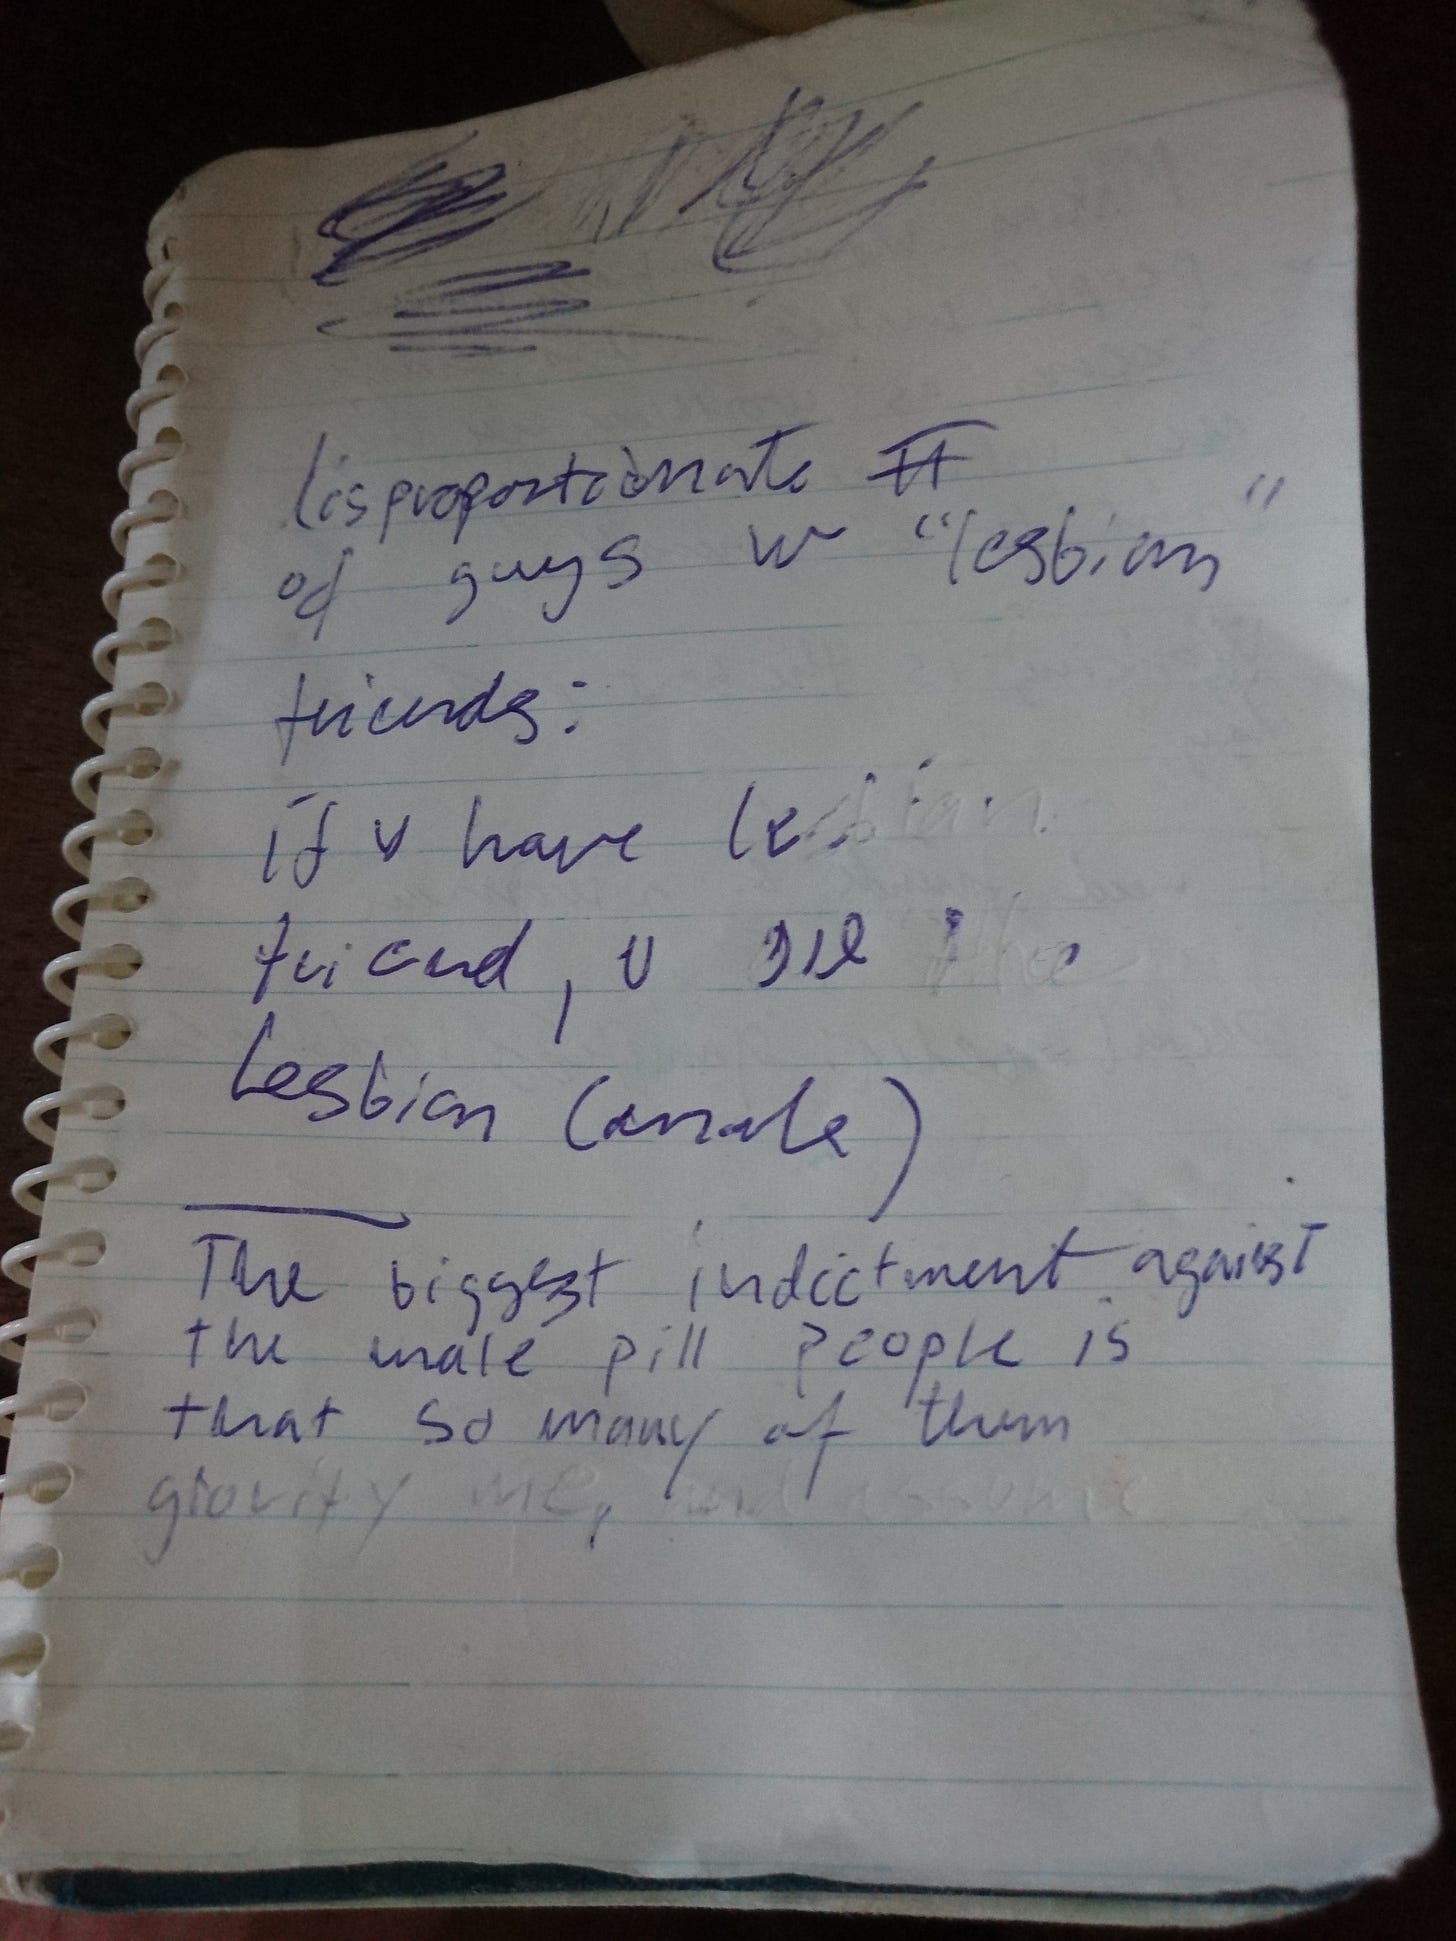 disproportionate #
of guys w "lesbian"
friends:
if u have lesbian
friend, u are the
lesbian (male)
The biggest indictment against
the male pill people is
that so many of them
gravity me, and assume